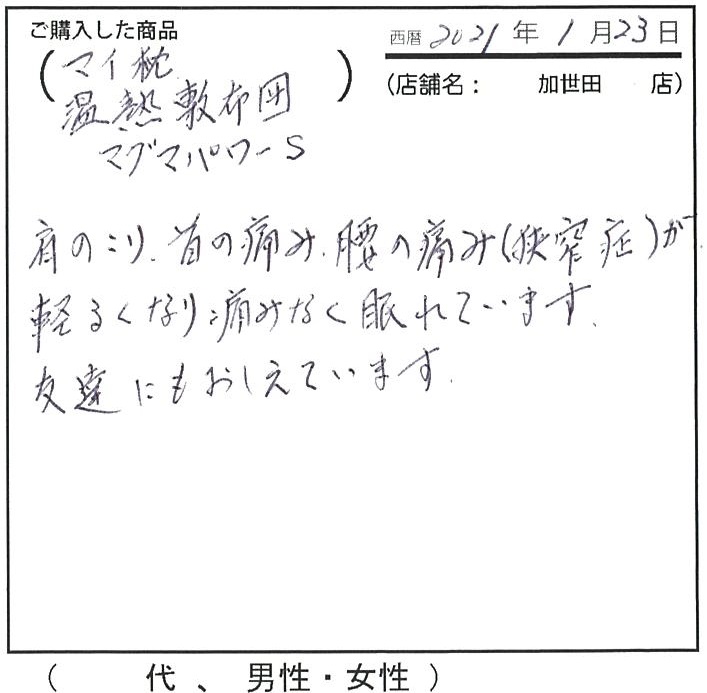 ご購入した商品
西暦 2021 年 1 月 23 日
(マイ枕
温熱敷布団
マグマパワーS)
(店舗名: 加世田 店)
肩のこり、首の痛み、腰の痛み(狭窄症)が
軽るくなり痛みなく眠れています。
友達にもおしえています。
( 代、男性・女性)